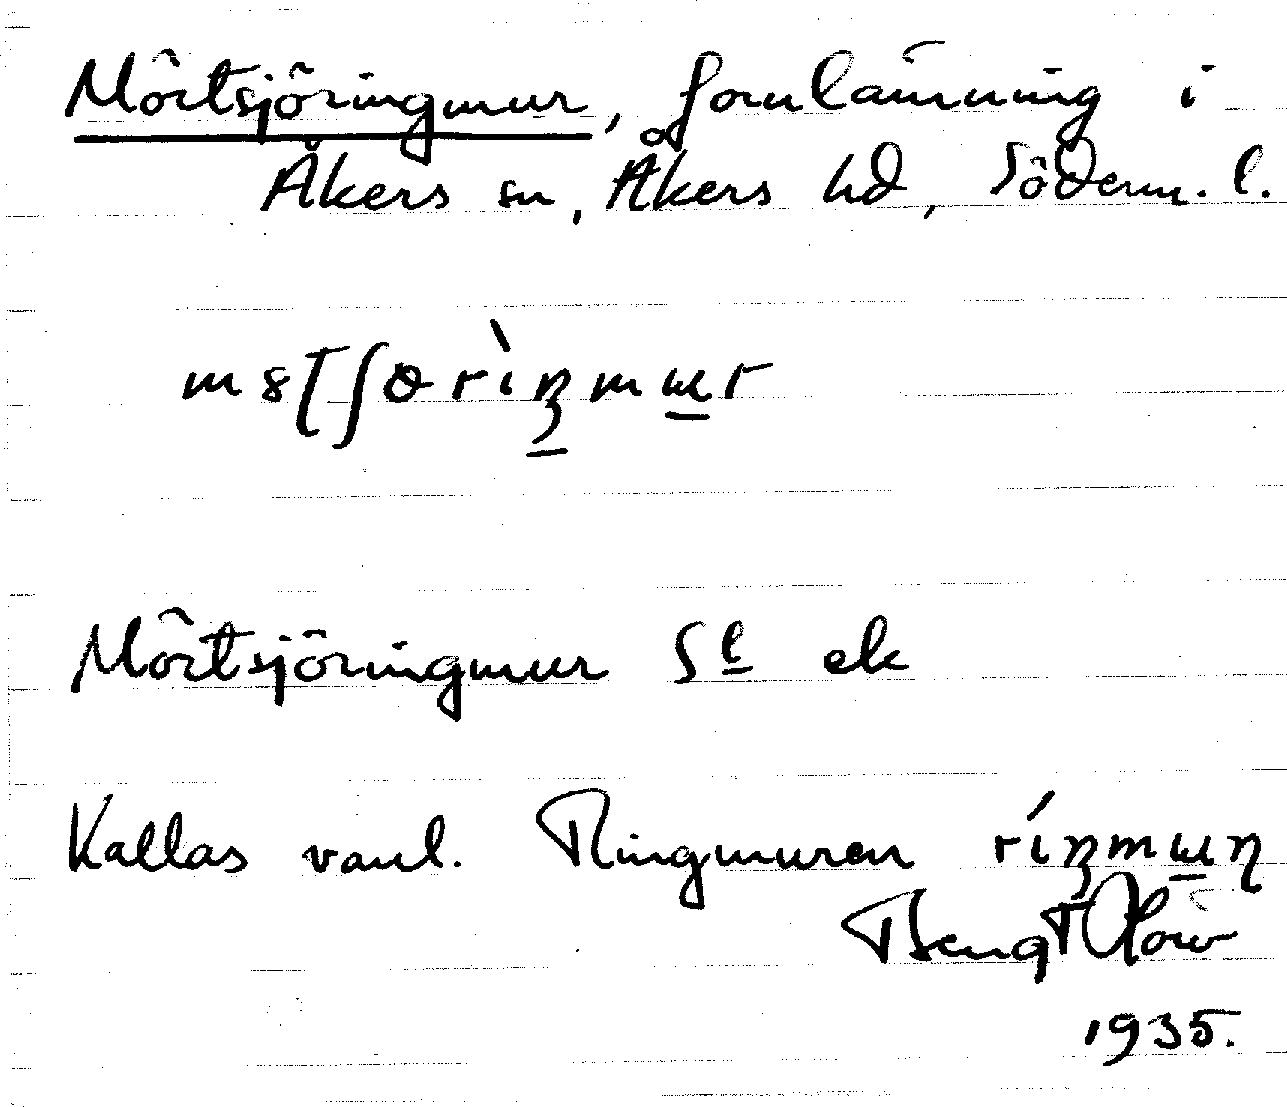 Mörtsjöringmur, fornlämning i
Åkers sn, Åkers hd, Söderm. l.
Mörtsjöringmur Sl ek
Kallas vanl. Ringmuren
Bengt
1935.